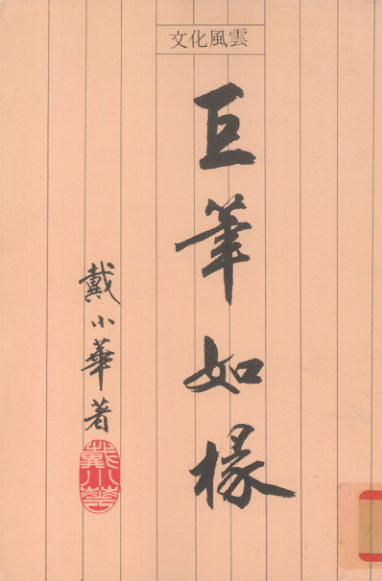 文化風雲
巨筆如椽
戴小華著
戴小華